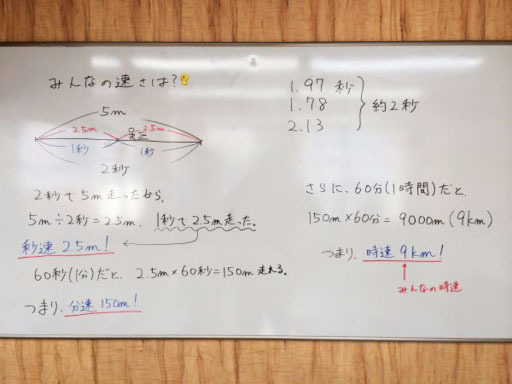 みんなの速さは?
5m
2.5m 2.5m
1秒 1秒
2秒
2秒で5m走ったから、
5m÷2秒=2.5m. 1秒で2.5m走った.
秒速2.5m!
60秒(1分)だと、2.5m×60秒=150m走れる。
つまり、分速150m!
1.97秒
1.78
2.13
約2秒
さらに、60分(1時間)だと、
150m×60分=9000m(9km)
つまり、時速9km!
みんなの時速